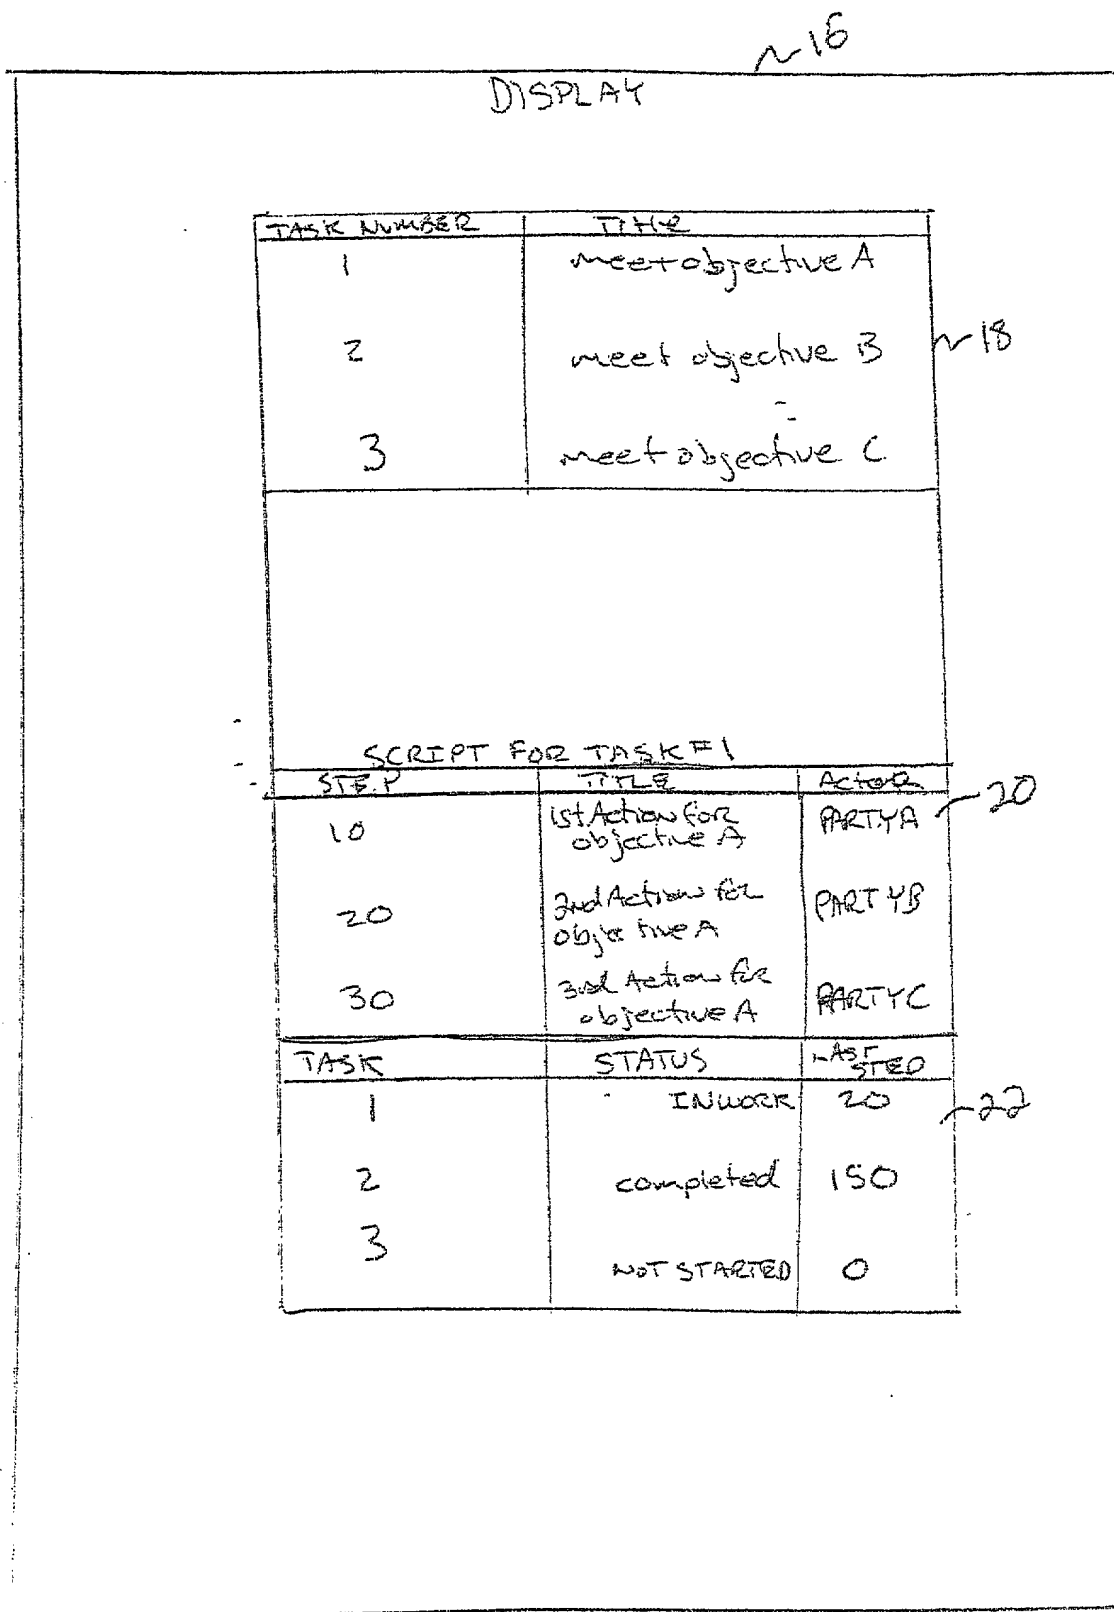 ~16
DISPLAY
TASK NUMBER TITLE
1 meet objective A
2 meet objective B ~18
3 meet objective C
SCRIPT FOR TASK #1
STEP TITLE ACTOR
~20
10 1st Action for PARTY A
objective A
20 2nd Action for PARTY B
objective A
30 3rd Action for PARTY C
objective A
TASK STATUS LAST
STEP
1 INWORK 20 ~22
2 completed 150
3
NOT STARTED 0